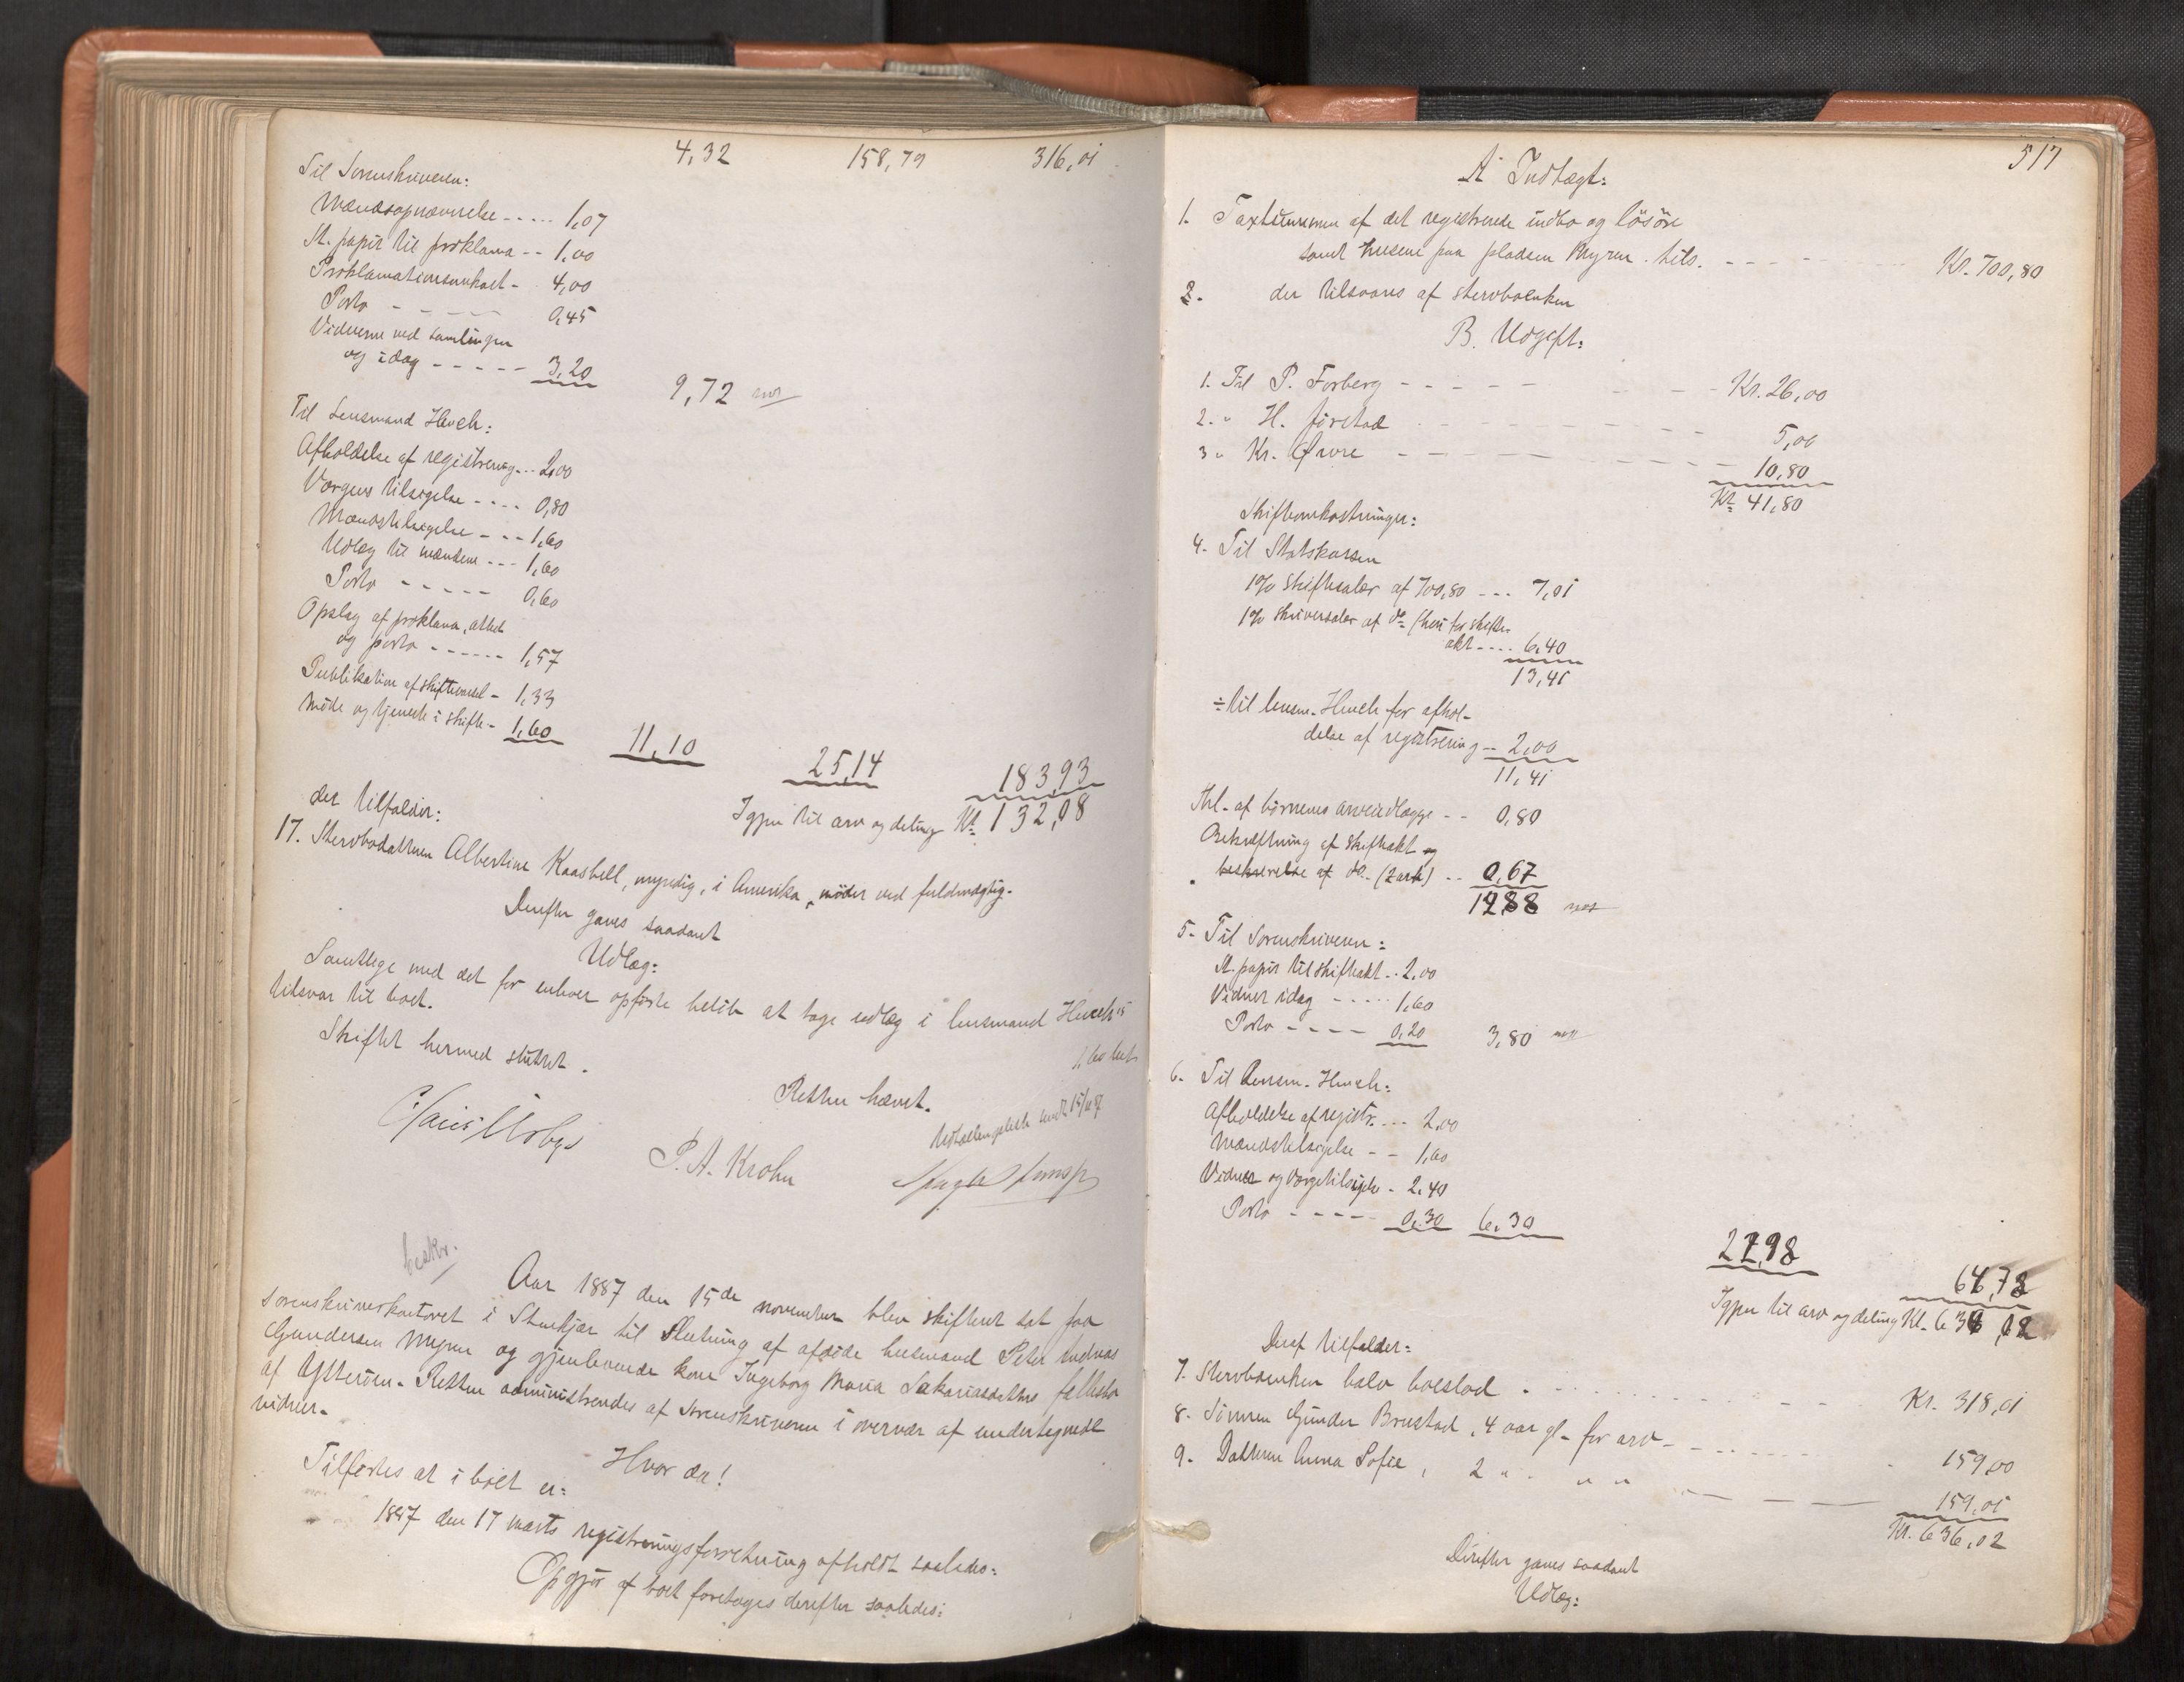 4,32 158,79 316,01
Til Sorenskriveren:
Mændsopnævnelse ..... 1,07
St. papir til proklama -- 1,00
Proklamationsomkost - 4,00
Porto - - - - - 0,45
Vidnerne ved samlingen
og idag - - - - - 3,20
9,72
Til Lensmand Hvech:
Afholdelse af registrering... 2,00
Vørgens tilsigelse - - - . 0,80
Mændstilsigelse - - - 1,60
Udlæg til mændene --- 1,60
Porto - - - - - 0,60
Opslag af proklama, attest
og porto - - - - - - 1,57
Publikation af skiftevarsel - 1,33
Møde og tjeneste i skifte - 1,60
11,10 25,14 183,93
Igjen til arv og deling Kr. 132,08
der tilfalder:
17. Stervbodatteren Albertine Kaasbøll, myndig, i Amerika, møder ved fuldmægtig.
Derefter gaves saadant
Udlæg:
Samtlige med det for enhver opførte beløb at tage udlæg i lensmand Hvech's
tilsvar til boet.
Skiftet hermed sluttet.
Retten hævet.
P. A. Krohn
beskr.
Aar 1887 den 15de november blev skifteret sat paa
sorenskriverkontoret i Stenkjær til slutning af afdøde husmand Peter Andreas
Gundersen Myren og gjenlevende kone Ingeborg Maria Sakariasdatters fællesbo
af Ytterøen. Retten administreredes af sorenskriveren i overvær af undertegnede
vidner.
Hvor da!
Tilførtes at i boet er:
1887 den 17 marts registreringsforretning afholdt saaledes:
Opgjør af boet foretages derefter saaledes:
517
A Indtægt:
1. Taxtsummen af det registrerede indbo og løsøre
samt husene paa pladsen Myren tils. - - - - - Kr. 700,80
2. der tilsvares af stervboenken
B. Udgift:
1. Til P. Forberg - - - - - - Kr. 26,00
2. " H. Jørstad - - - - - - 5,00
3 " Kr. Øvre - - - - - - 10,80
Kr. 41,80
Skifteomkostninger:
4. Til Statskassen
1% skiftesalær af 700,80 --- 7,01
1% skriversalær af do (heri for skifte-
akt .... 6,40
13,41
÷ til lensm. Hvech for afhol-
delse af registrering -- 2,00
11,41
Thl. af børnenes arveindlægge -- 0,80
Bekræftning af skifteakt og
beskrivelse af do. (2 ark) .. 0,67
12,88
5. Til Sorenskriveren:
St. papir til skifteakt .. 2,00
Vidner idag - - - - - 1,60
Porto - - - - 0,20 3,80
6. Til Lensm. Hvech:
Afholdelse af registr. --- 2,00
Mændstilsigelse - - 1,60
Vidner og vørgetilsigelse - 2,40
Porto - - - - - 0,30 6,30
22,98
64,78
Igjen til arv og deling Kr. 636,02
Deraf tilfalder:
7. Stervboenken halv boeslod . - - - - - Kr. 318,01
8. Sønnen Gunder Brustad, 4 aar gl. for arv - - - - - 159,00
9. Datteren Anna Sofie, 2 " " " " - - - 159,01
Kr. 636,02
Derefter gaves saadant
Udlæg: